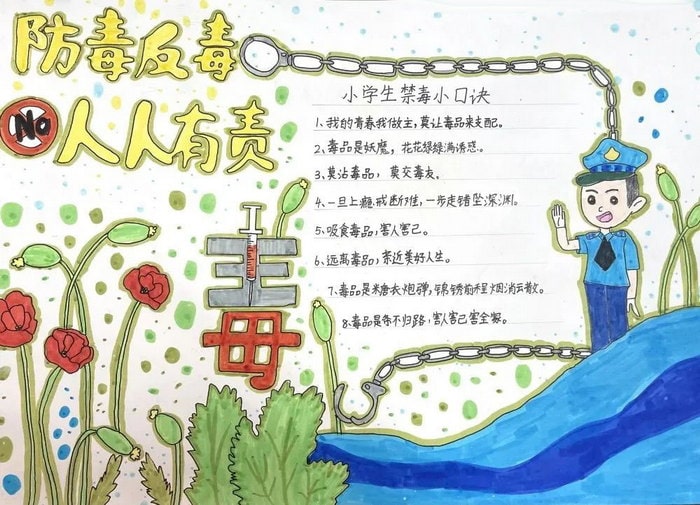 防毒反毒
No
人人有责
小学生禁毒小口诀
1、我的青春我做主,莫让毒品来支配。
2、毒品是妖魔,花花绿绿满诱惑。
3、莫沾毒品,莫交毒友。
4、一旦上瘾戒断难,一步走错坠深渊。
5、吸食毒品,害人害己。
6、远离毒品,亲近美好人生。
7、毒品是米唐衣炮弹,锦锈前程烟消云散。
8、毒品是布不归路,害人害己害全家。
毒